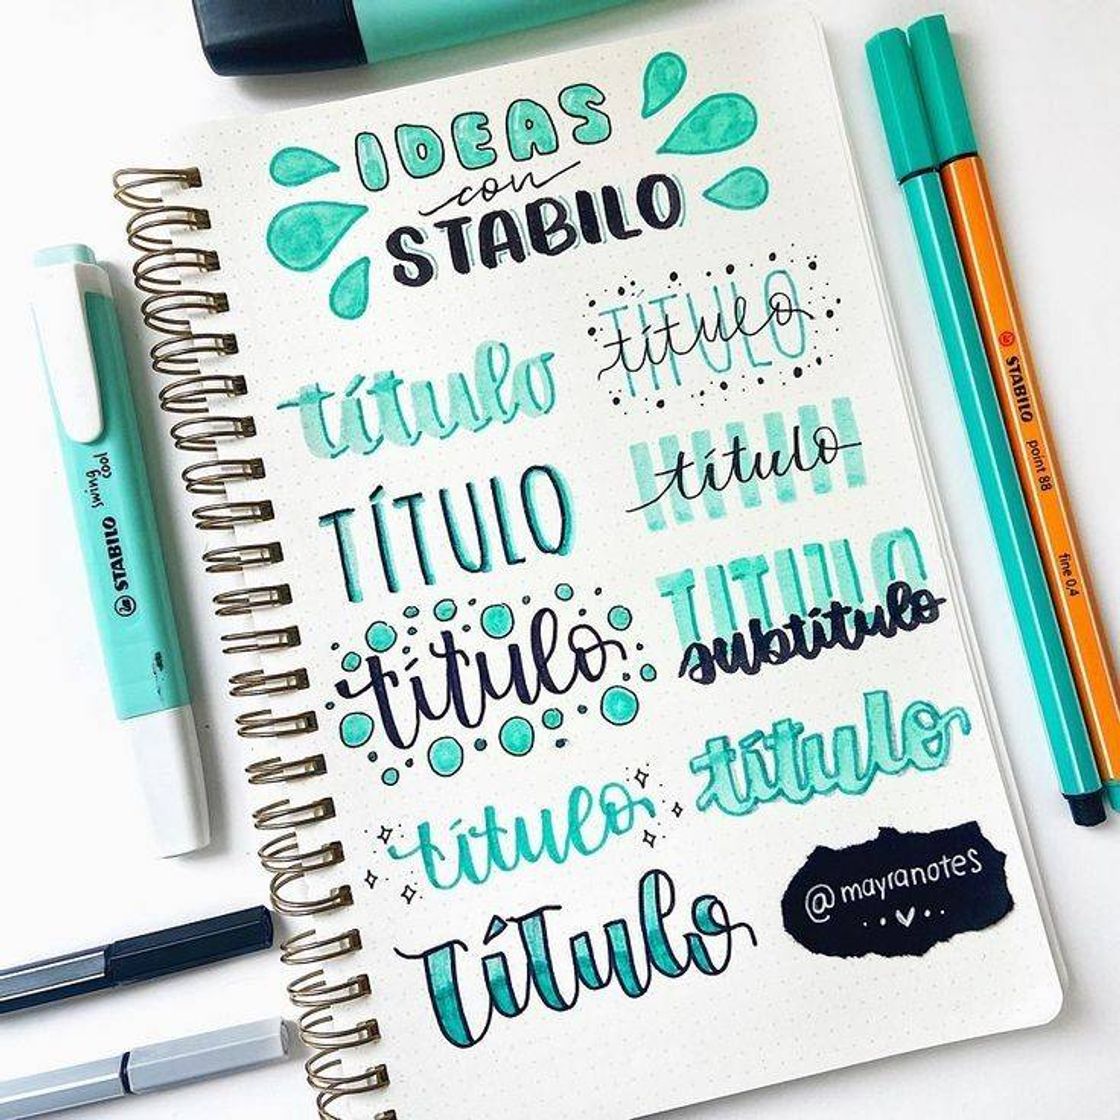 IDEAS
con
STABILO
título
TÍTULO
título
TÍTULO
título
título
TÍTULO
subtítulo
título
título
título
Título
@mayranotes
STABILO swing cool
STABILO point 88 fine 0,4